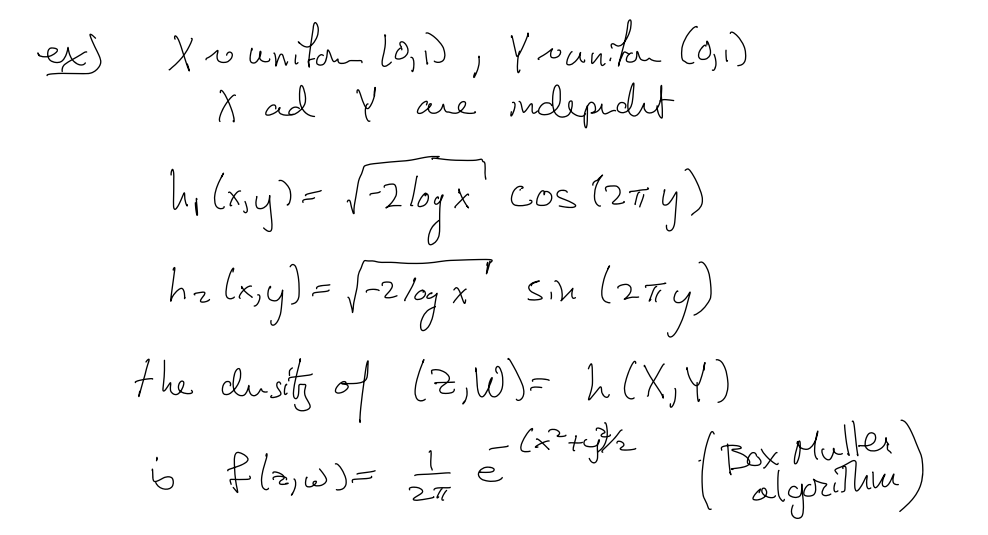 ex) X ~ uniform (0,1), Y ~ uniform (0,1)
X ad Y are independt
h₁(x,y) = √(-2 log x) cos(2π y)
h₂(x,y) = √(-2 log x) sin(2π y)
the density of (Z,W) = h(X,Y)
is f(z,w) = 1/2π e^{-(x²+y²)/2} (Box Muller
algorithm)